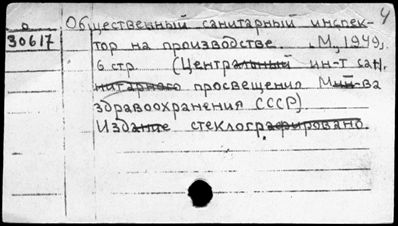 4
о
30617
Общественный санитарный инспек-
тор на производстве. М, 1949,
6 стр. (Центральный ин-т сан.
нитарного просвещения Мин-ва
здравоохранения СССР).
Издание стеклографировано.